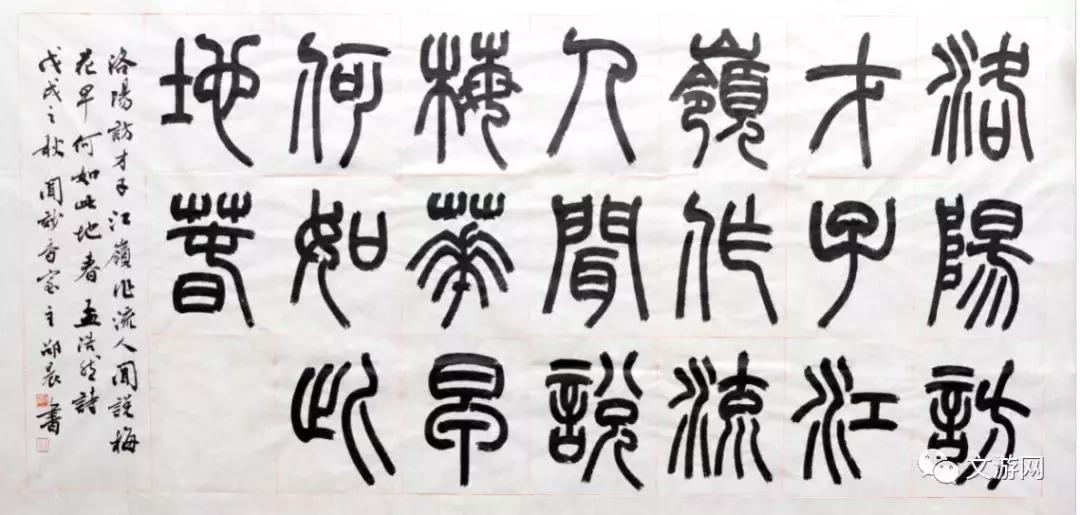 洛陽訪
才子江
嶺作流
人聞說
梅華早
何如此
地春
洛陽訪才子江嶺作流人聞說梅
花早何如此地春孟浩然詩
戊戌之秋聞妙香室主晨書
文游网